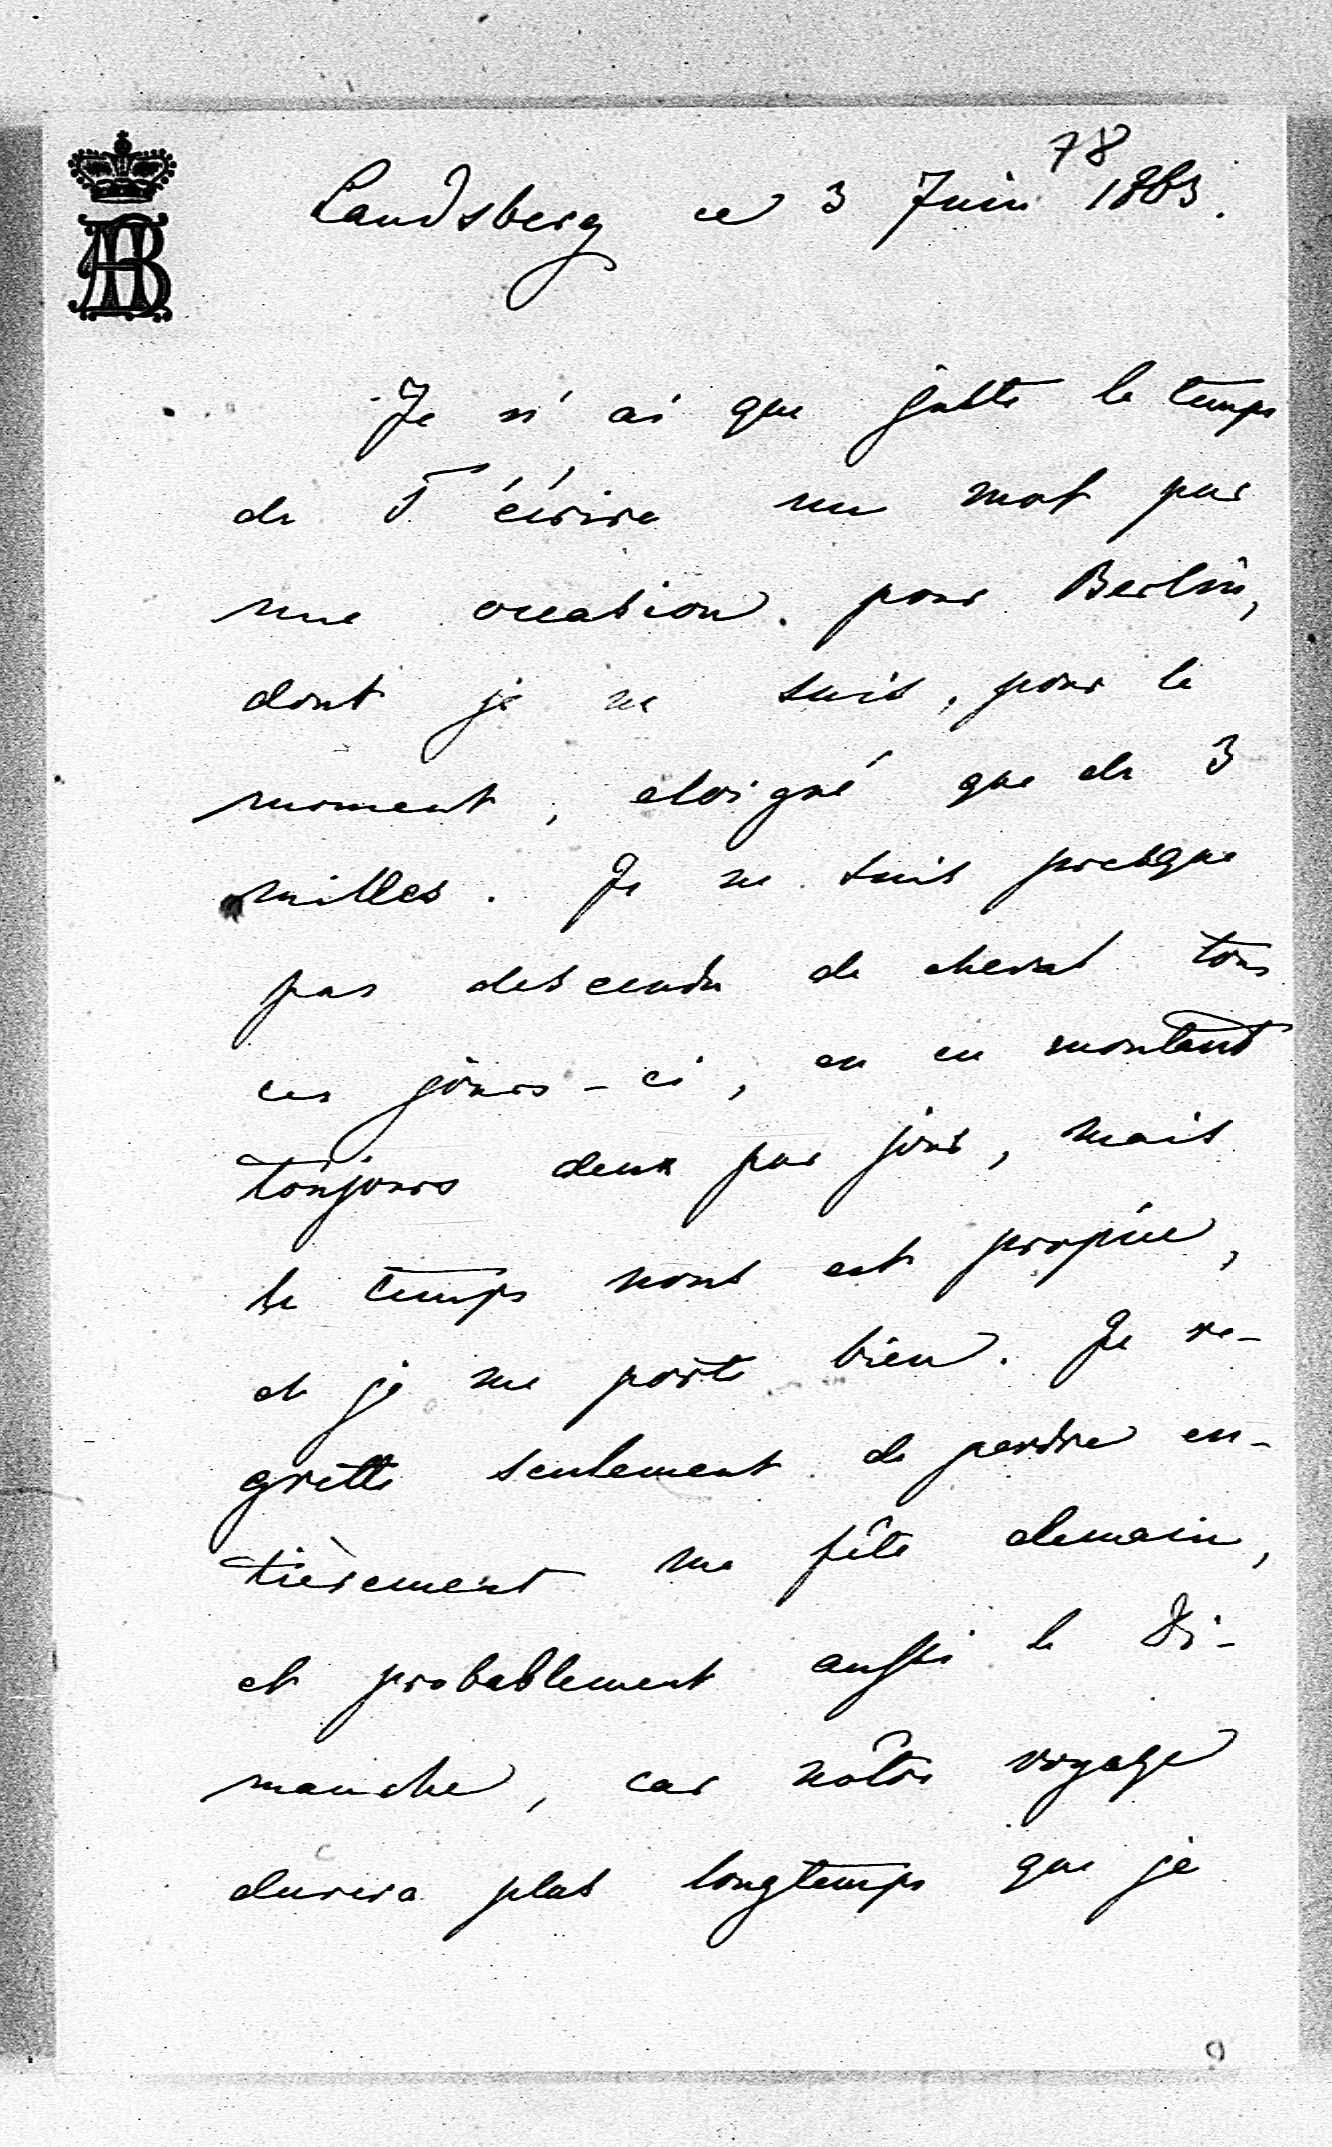 78
Landsberg ce 3 Juin 1863.
Je n'ai que juste le temps
de T'écrire un mot par
une occasion pour Berlin,
dont je ne suis, pour le
moment, eloigné que de 3
milles. Je ne suis presque
pas descendu de cheval tous
ces jours-ci, en en montant
toujours deux par jour, mais
le temps nous est propice,
et je me porte bien. Je re-
grette seulement de perdre en-
tièrement ma fête demain,
et probablement aussi le Di-
manche, car nôtre voyage
durera plus longtemps que je
9